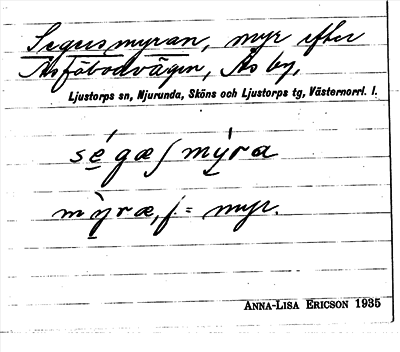 Segersmyran, myr efter
Åsfäbodvägen, Ås by,
Ljustorps sn, Njurunda, Sköns och Ljustorps tg, Västernorrl. l.
ségæʃ mýra
mỳræ, f. = myr.
ANNA-LISA ERICSON 1935